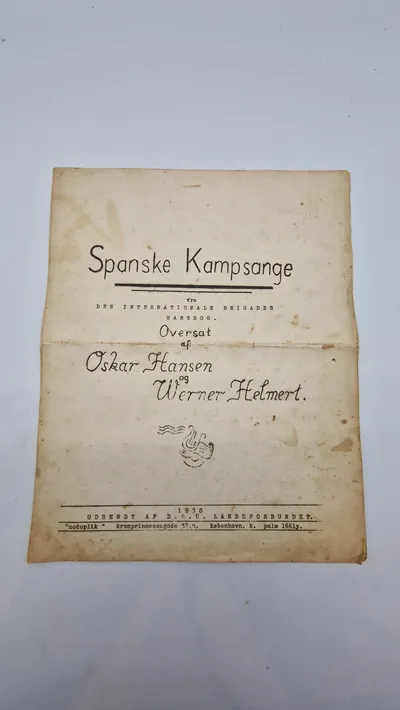 Spanske Kampsange
fra
DEN INTERNATIONALE BRIGADES
SANGBOG.
Oversat
af
Oskar Hansen
og
Werner Helmert.
1938
UDSENDT AF D. U. LANDSFORBUNDET.
"noduplik" kronprinsessegade københavn. k. palæ 1661y.